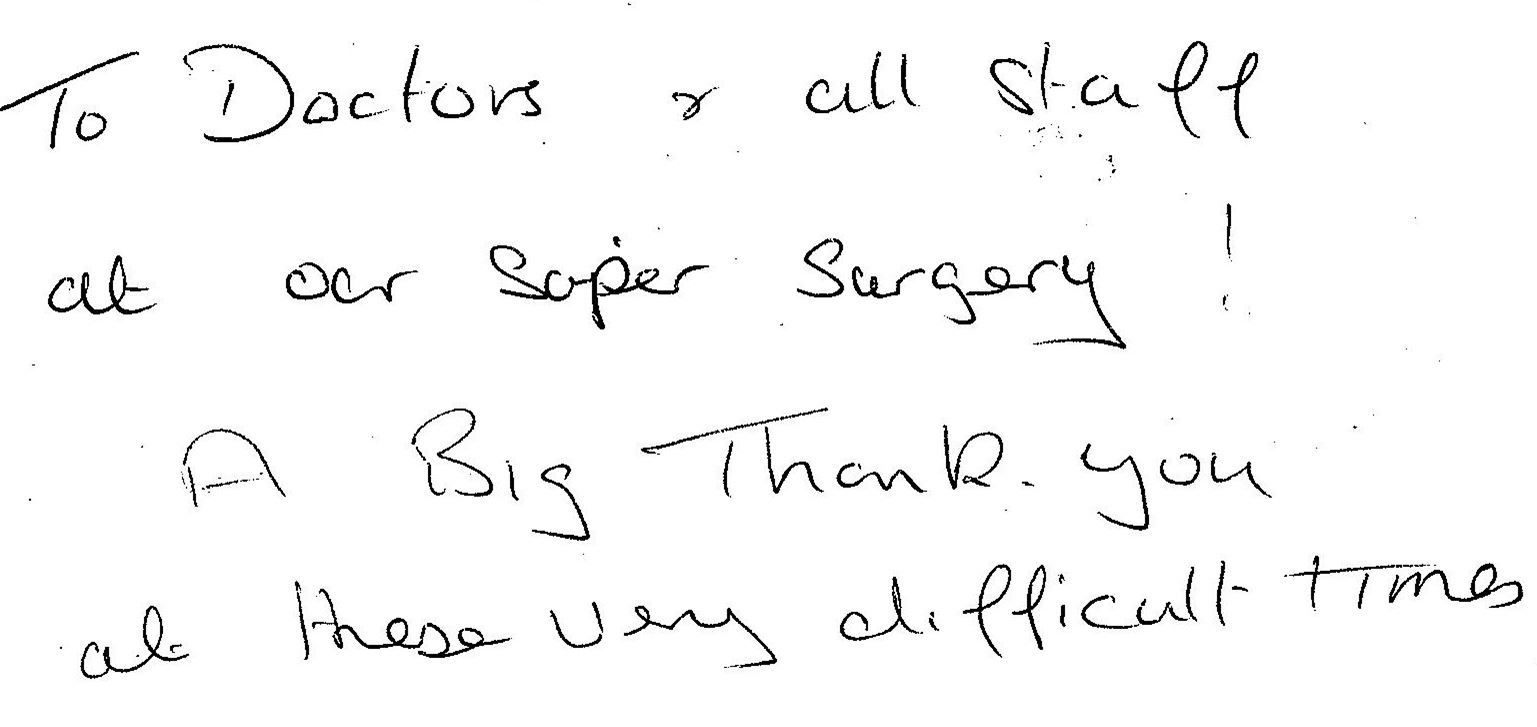 To Doctors & all Staff
at our Super Surgery !
A Big Thank. you
at these very difficult times